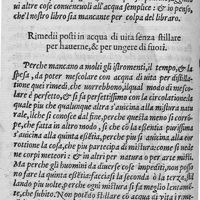 ni altre cose conuenculi all'acqua semplice: & in
che'l nostro libro sia mancante per colpa del libraro.
Rimedii posti in acqua di uita senza stillare
per hauerne, & per ungere di fuori.
Perche mancano a molti gli istromenti, il tempo, & la
spesa, da poter mescolar con acqua di uita per distilla-
tione quei rimedi, che uorrebbono, il qual modo di mesco-
lare è perfetto, & si fa perfettissimo con la circolatione, la
quale piu che qualunque altra s'auicina alla mistura natu-
rale, ilche si conosce dal fine, perche questa non cosi s'in-
forza, ne si corrompe presto, si che la essentia purissima
s'auicina alla quinta essentia, perche s'auicina alla incor-
rottione la cosa, che piu participa di mistura: come si uede ne
corpi meteori: & in altri per natura o per arte misti.
Ma perche gli huomini da diuerse cose impediti, non posso-
no far la quinta essentia: faccisi la seconda ò la terza, stil-
lando piu uolte, perche ogni mistura si fa meglio lentamẽ-
te, che subito. Non potẽdo stillare ò circolare l'acqua